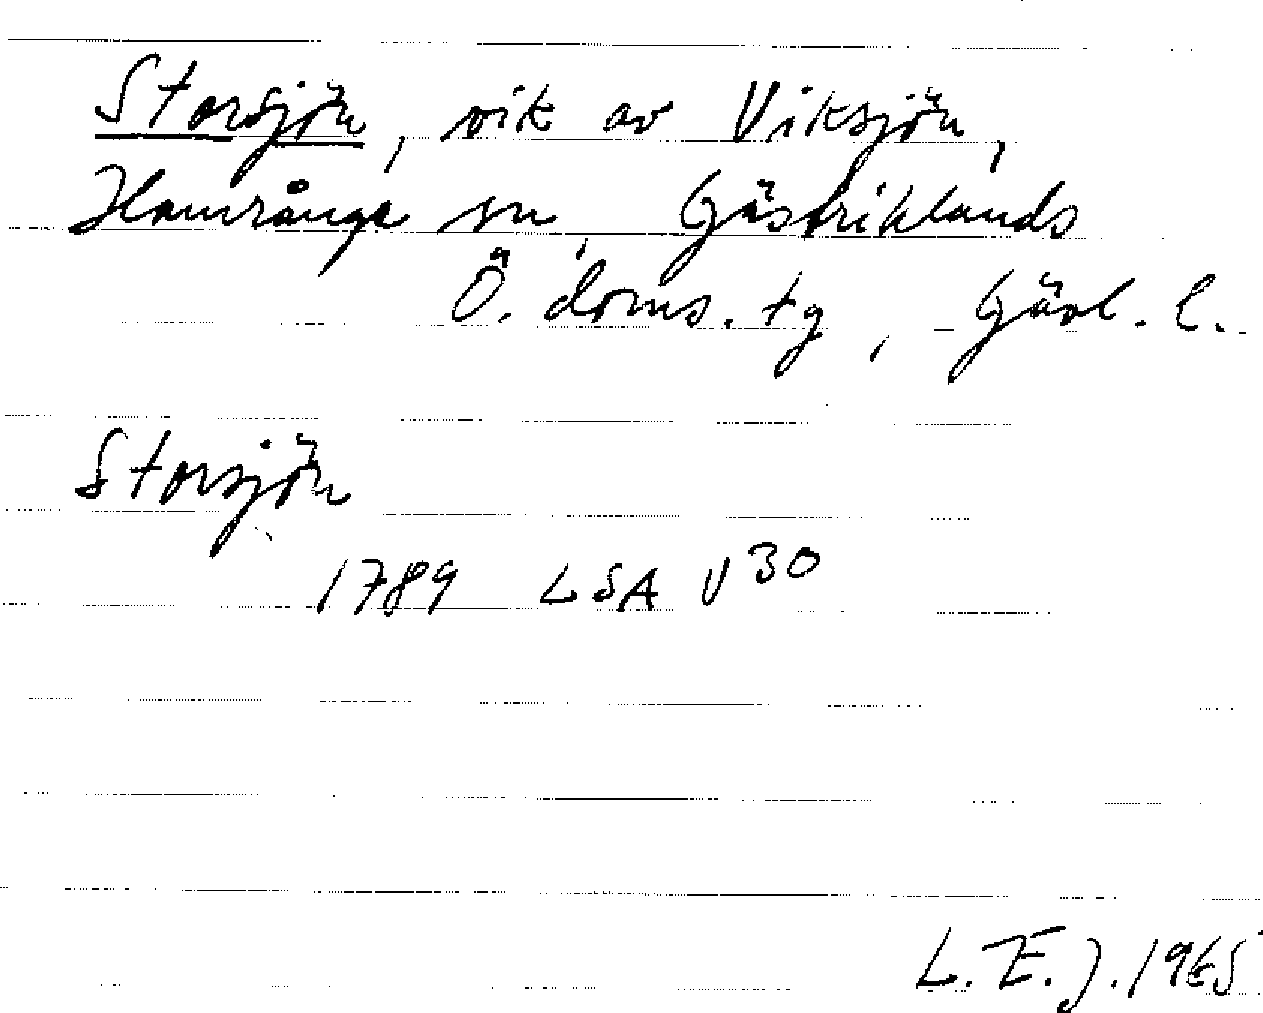 Storsjön, vik av Viksjön,
Hamrånge sn, Gästriklands
Ö. doms. tg, Gävl. l.
Storsjön
1789 LSA V30
L.E.J. 1965